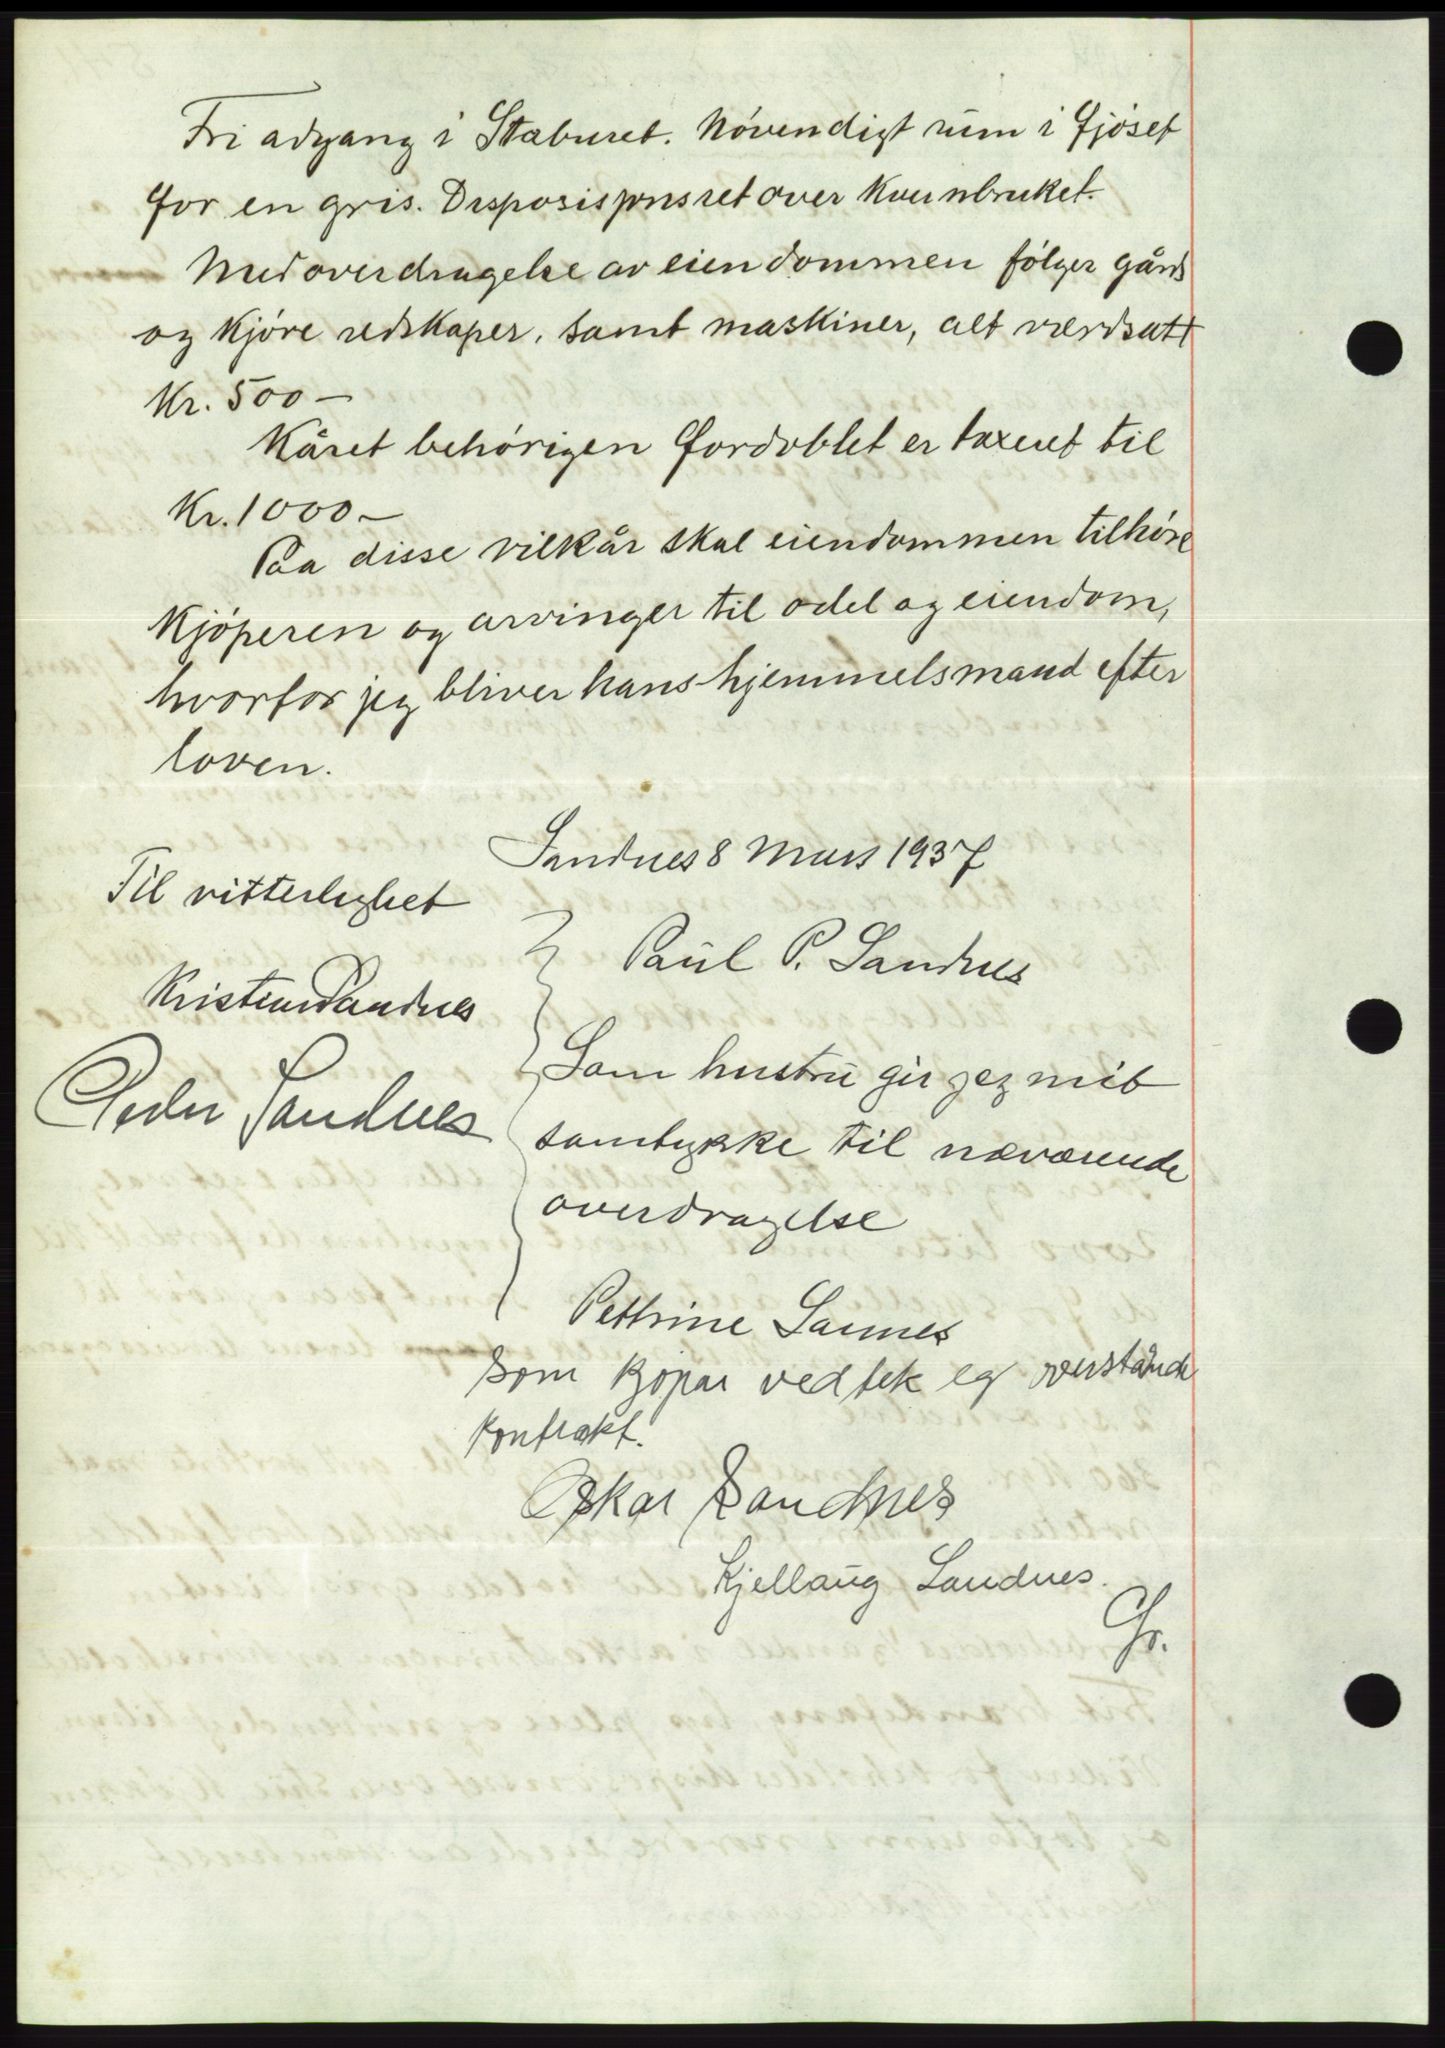 Fri adgang i Staburet. Növendigt rum i fjöset
for en gris. Disposisjonsret over Kvernbruket.
Med overdragelse av eiendommen følger gårds
og kjöre redskaper, samt maskiner, alt værdsatt
Kr. 500 –
Kåret behörigen fordoblet er taxeret til
Kr. 1000 –
Paa disse vilkår skal eiendommen tilhöre
Kjöperen og arvinger til odel og eiendom,
hvorfor jeg bliver hans hjemmelsmand efter
loven.
Sandnes 8 Mars 1937
Til vitterlighet
Paul P. Sandnes
Kristian Sandnes
Peder Sandnes
Som hustru gir jeg mit
samtykke til nærværende
overdragelse
Pethrine Sannes
Som kjöpar vedtek eg overstånde
kontrakt.
Oskar Sandnes
Kjellaug Sandnes.